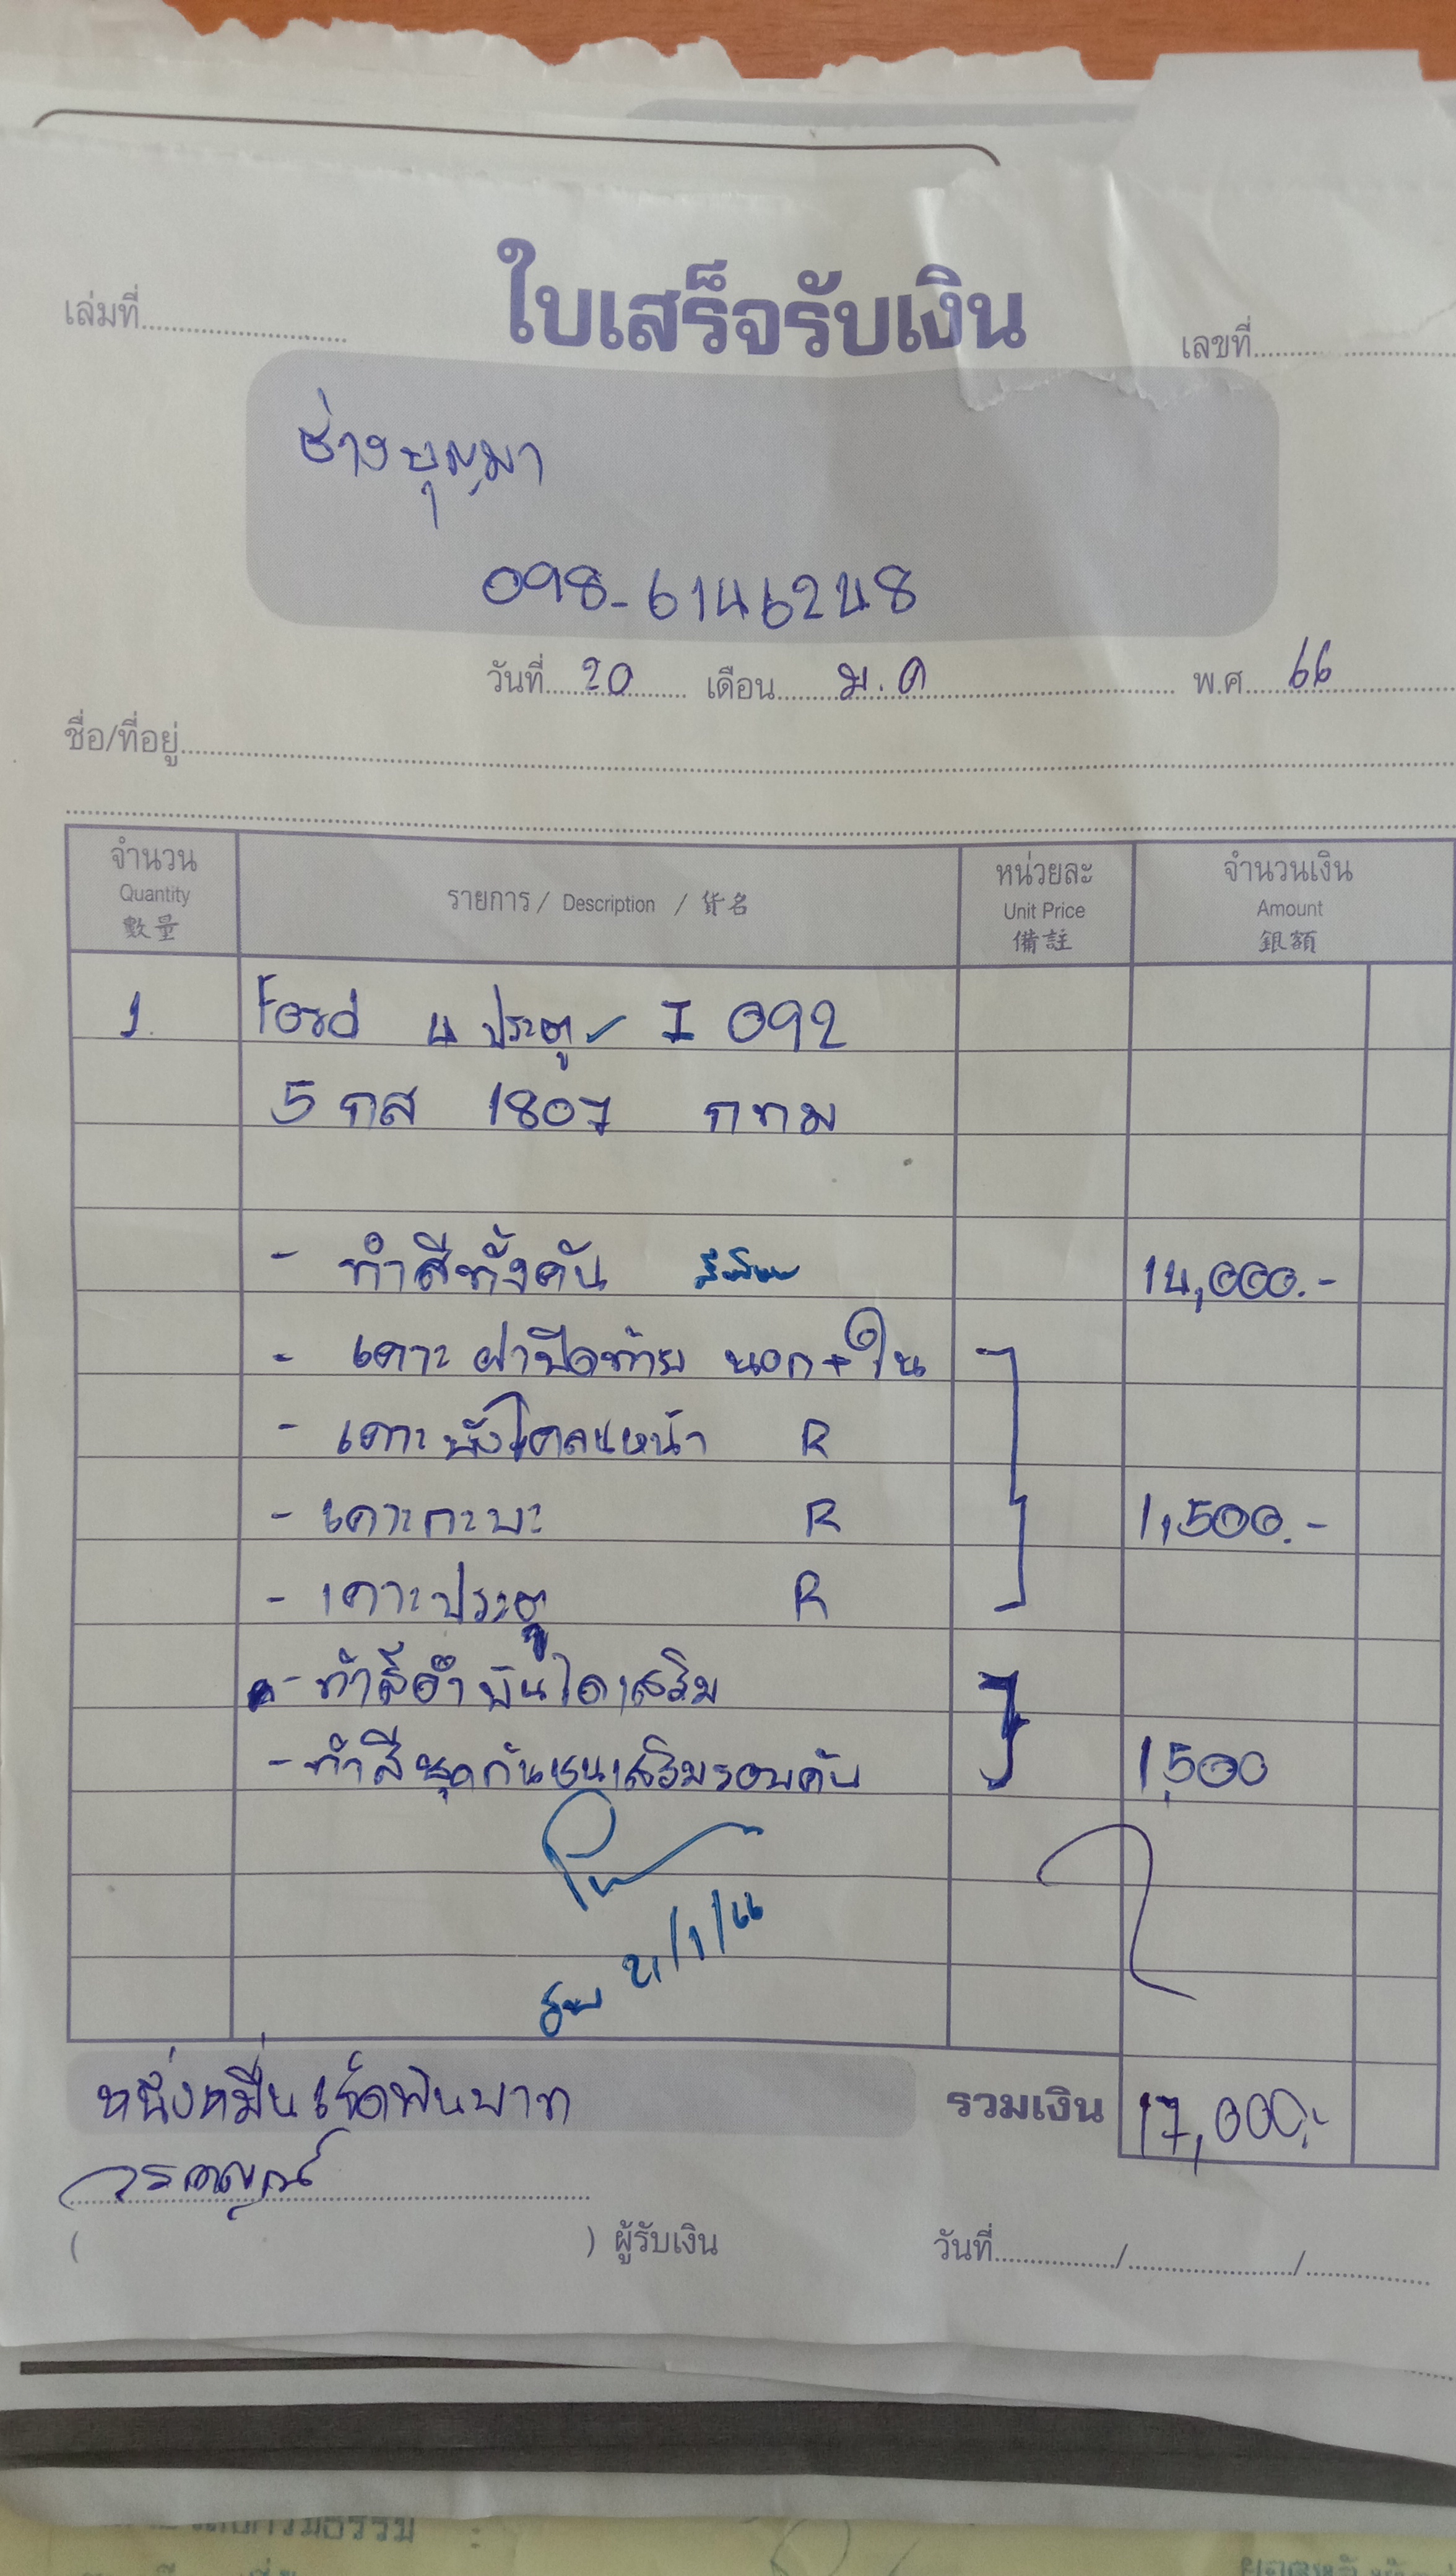 ใบเสร็จรับเงิน
เล่มที่
เลขที่
ช่างบุญมา
098-6146248
วันที่ 20 เดือน ม.ค พ.ศ. 66
ชื่อ/ที่อยู่
จำนวน รายการ / Description / 貨名 หน่วยละ จำนวนเงิน
Quantity Unit Price Amount
數量 備註 銀額
1. Ford 4 ประตู I 092
5 กส 1807 กทม
- ทำสีทั้งคัน 14,000.-
- เคาะ ฝาปิดท้าย นอก+ใน
- เคาะบังโคลนหน้า R
- เคาะกะบะ R 1,500.-
- เคาะประตู R
- ทำสีดำ บันไดเสริม
- ทำสีชุดกันชนเสริมรอบคัน 1,500
21/1/66
หนึ่งหมื่นเจ็ดพันบาท รวมเงิน 17,000.-
( ) ผู้รับเงิน วันที่ / /